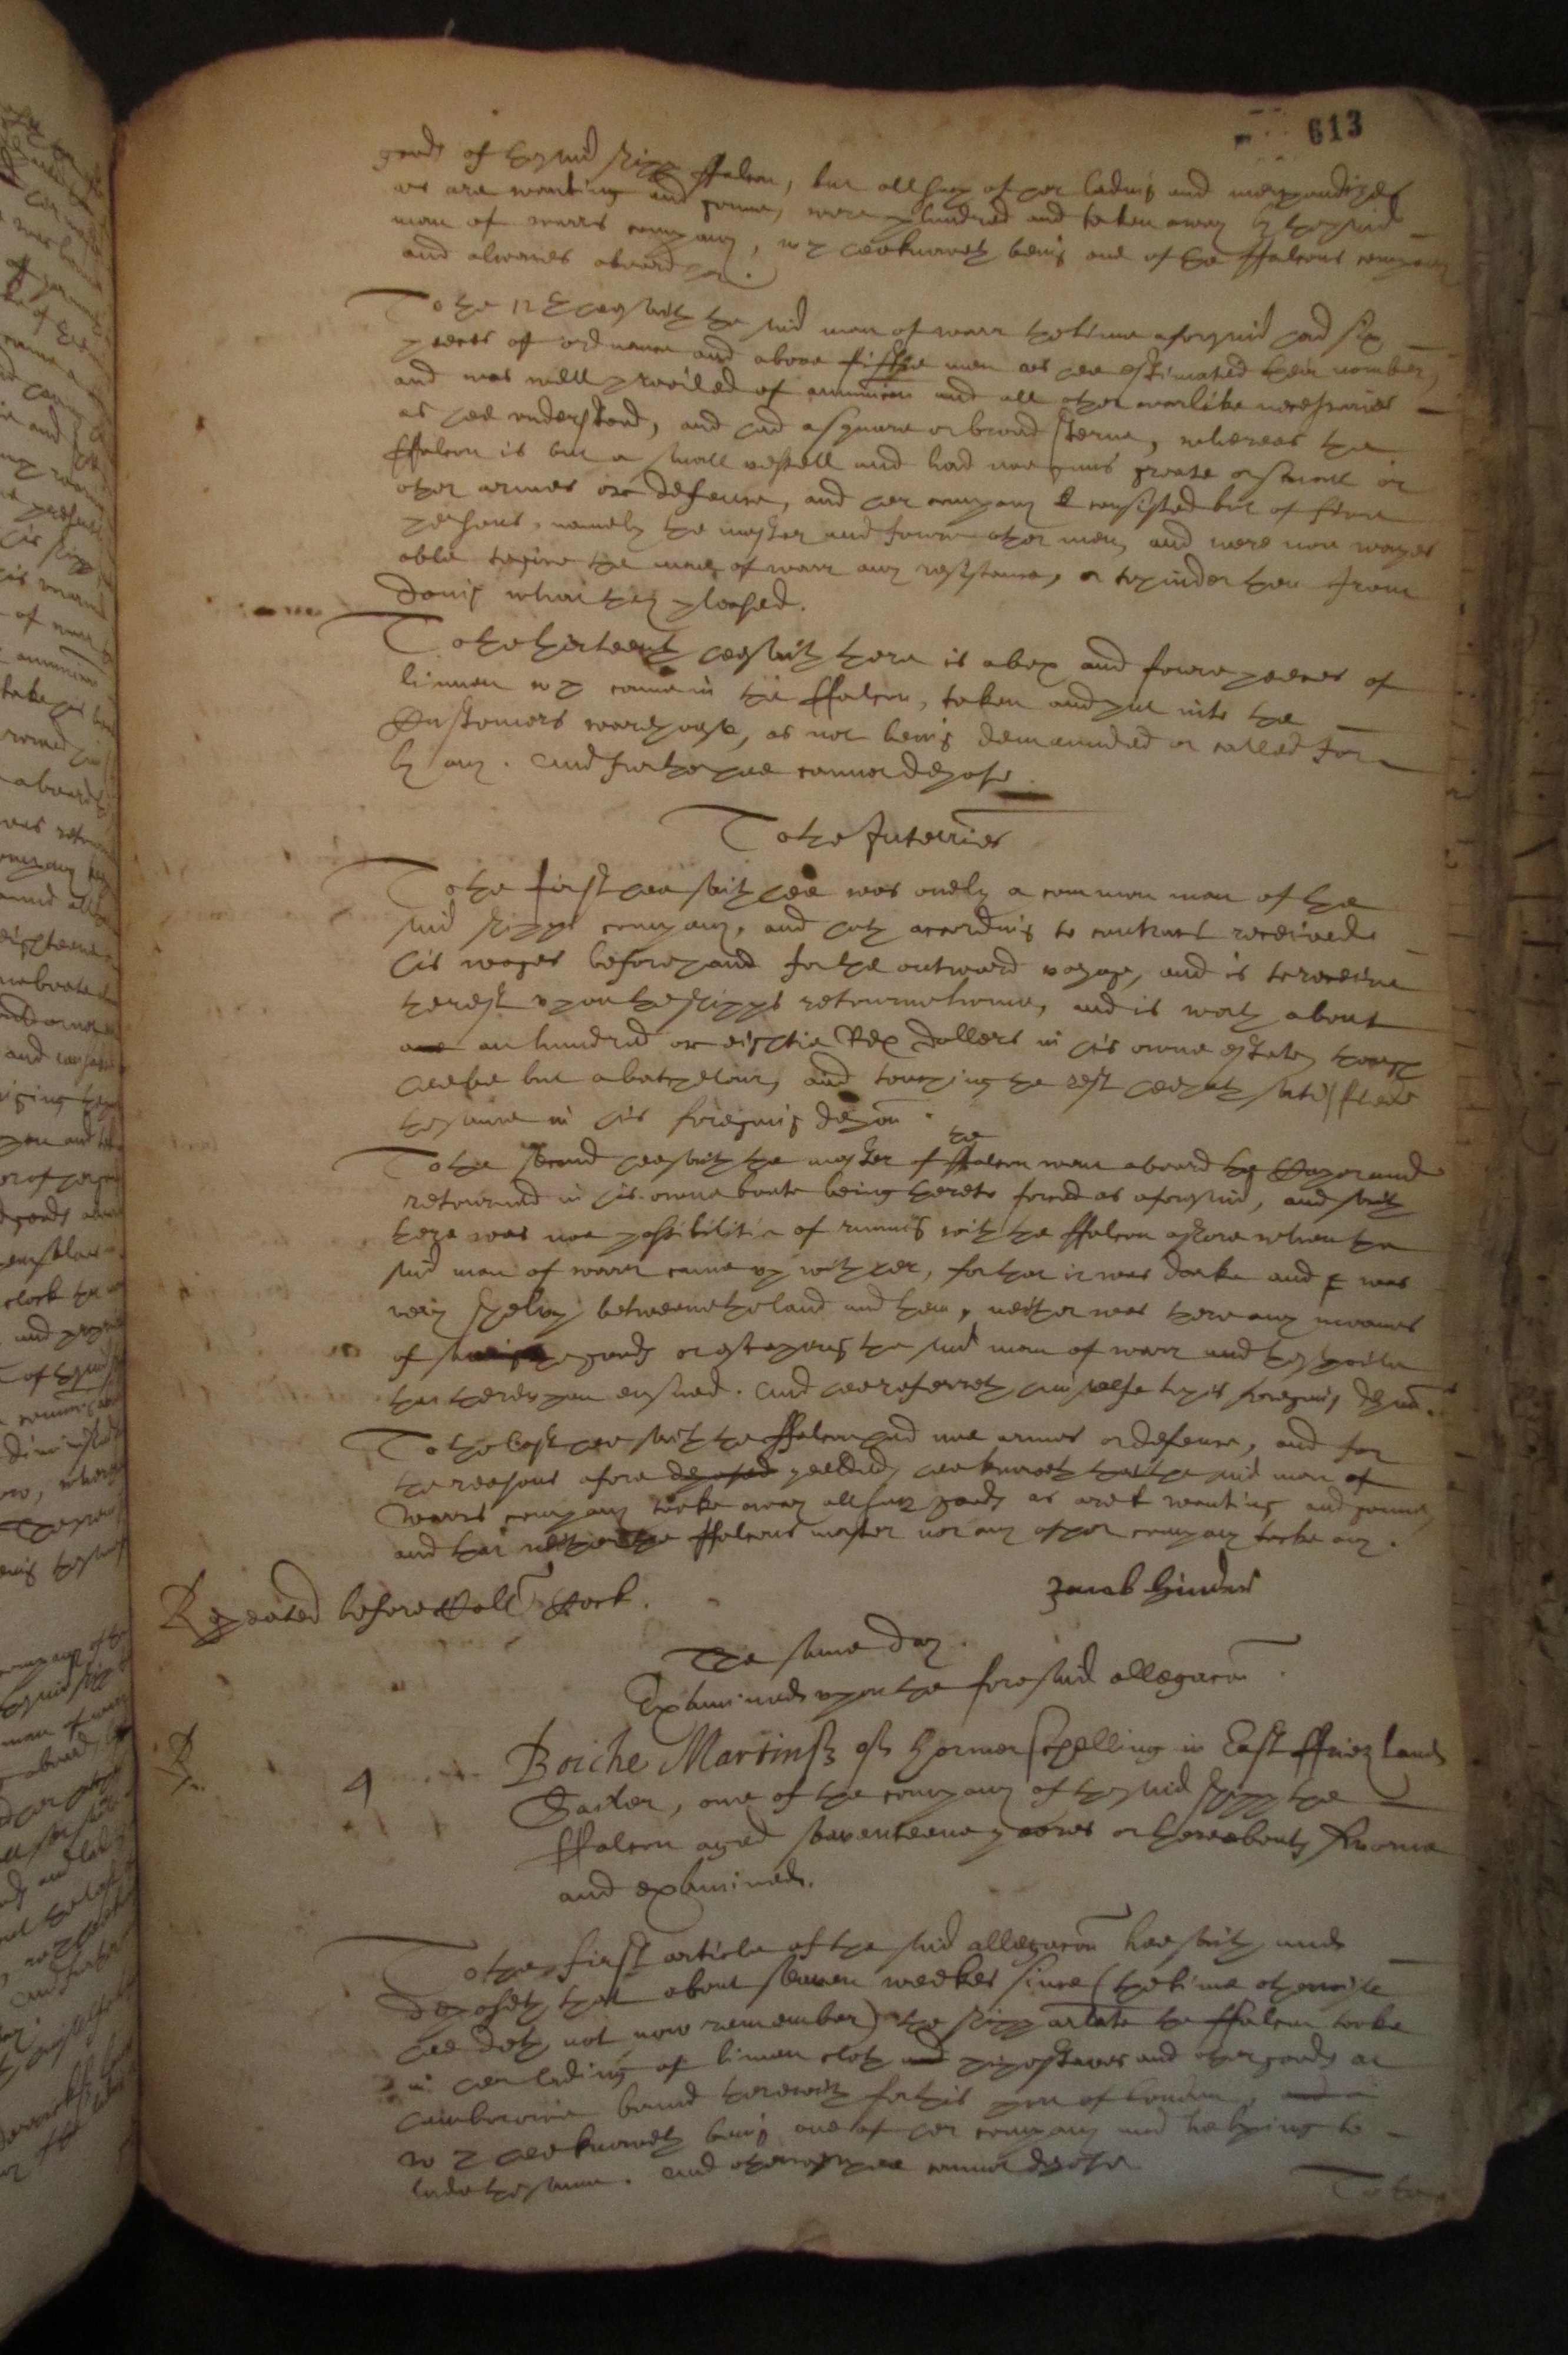 613
goods of the said shipp ffalcon, but all such of her lading and merchandizes
as are wanting and gonne, were plundred and taken away by the said
man of warrs company, wch hee knoweth being one of the ffalcons company
and alwaies aboard her.
To the 12th hee saith the said man of warr the time aforesaid had six
peeces of ordnance and above fiftie men as hee estimated their nomber,
and was well provided of amunicon and all other warlike necessaries
as hee understood, and had a square or broad sterne, whereas the
ffalcon is but a small vessell and had noe guns greate or small or
other armes or defence, and her company consisted but of five
persons, namely the master and foure other men, and were noe wayes
able to give the man of warr any resistance, or to hinder them from
doing what they pleased.
To the thirteenth hee saith there is a box and foure peeces of
linnen wch came in the ffalcon, taken and put into the
Customers warehouse, as not being demaunded or called for
by any. And further hee cannot depose.
To the Interries
To the first hee saith hee was onely a common man of the
said shipps company, and hath according to contract received
his wages beforehand for the outward voyage, and is to receive
the rest upon the shipps retourne home, and is worth about
one an hundred or eightie Rex dollers in his owne estate, though
hee bee but a batchelour, and touching the rest hee hath satisfied
the same in his foregoing depon.
To the second hee saith the master of the ffalcon went aboard the Caper and
retourned in his owne boate being thereto forced as aforesaid, and saith
there was noe possibilitie of running with the ffalcon ashore when the
said man of warr came up with her, for that it was darke and was
very shelvy betweene the land and them, neither was there any meanes
of saving the goods or escaping the said man of warr and the spoile
that thereupon ensued. And hee referreth himselfe to his foregoing depon.
To the last hee saith the ffalcon had noe armes or defence, and for
the reasons afore deposed yeelded, hee knoweth that the said man of
warrs company tooke away all such goods as are wanting and gonne,
and that neither the ffalcons master nor any of her company tooke any.
Repeated before Coll Cock.
Jacob Hinders
The same day.
Examined upon the foresaid allegacon.
4
Boiche Martins of Hormer Schelling in East ffriezland
Sailor, one of the company of the said shipp the
ffalcon aged seaventeene yeeres or thereabouts sworne
and examined.
To the first article of the said allegacon hee saith and
deposeth that about seaven weekes since (the time otherwise
hee doth not now remember) the shipp arlate the ffalcon tooke
in her lading of linnen cloth and pipestaves and other goods at
bound therewith for this port of London,
wch hee knoweth being one of her company and helping to
lade the same. And otherwise hee cannot depose
To the